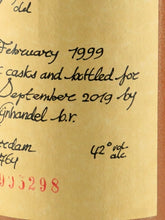 old
February 1999
casks and bottled for
September 2019 by
jnhandel b.v.
erdam
42° vol
alc
935298